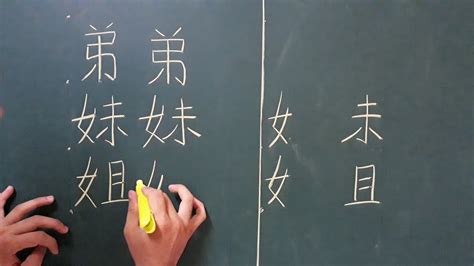 弟 弟
妹 妹 女 未
姐 女 且